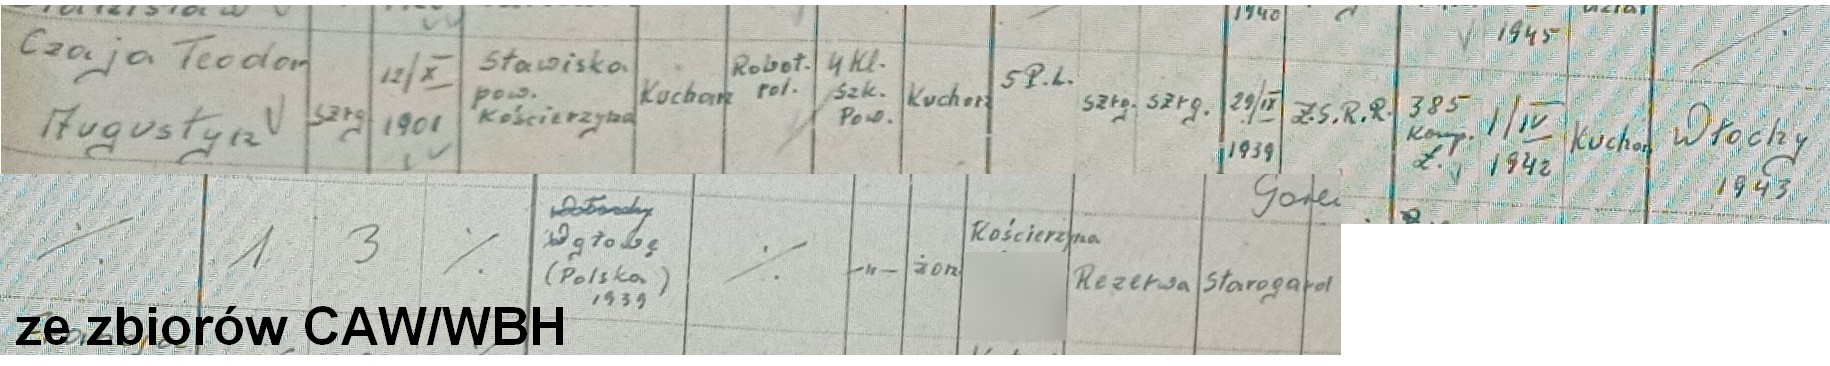 1940
1945
Czaja Teodor
Augustyn V szrg 12/X 1901 Stawiska pow. Kościerzyna Kucharz Robot. rol. 4 Kl. Szk. Pow. Kucharz 5 P.L. szrg. szrg. 29/IX 1939 Z.S.R.R. 385 Komp. Ł. 1/IV 1942 Kuchar Włochy 1943
·/· 1 3 ·/· W głowę (Polska) 1939 ·/· —"— żon Kościerzyna Rezerwa Starogard
ze zbiorów CAW/WBH